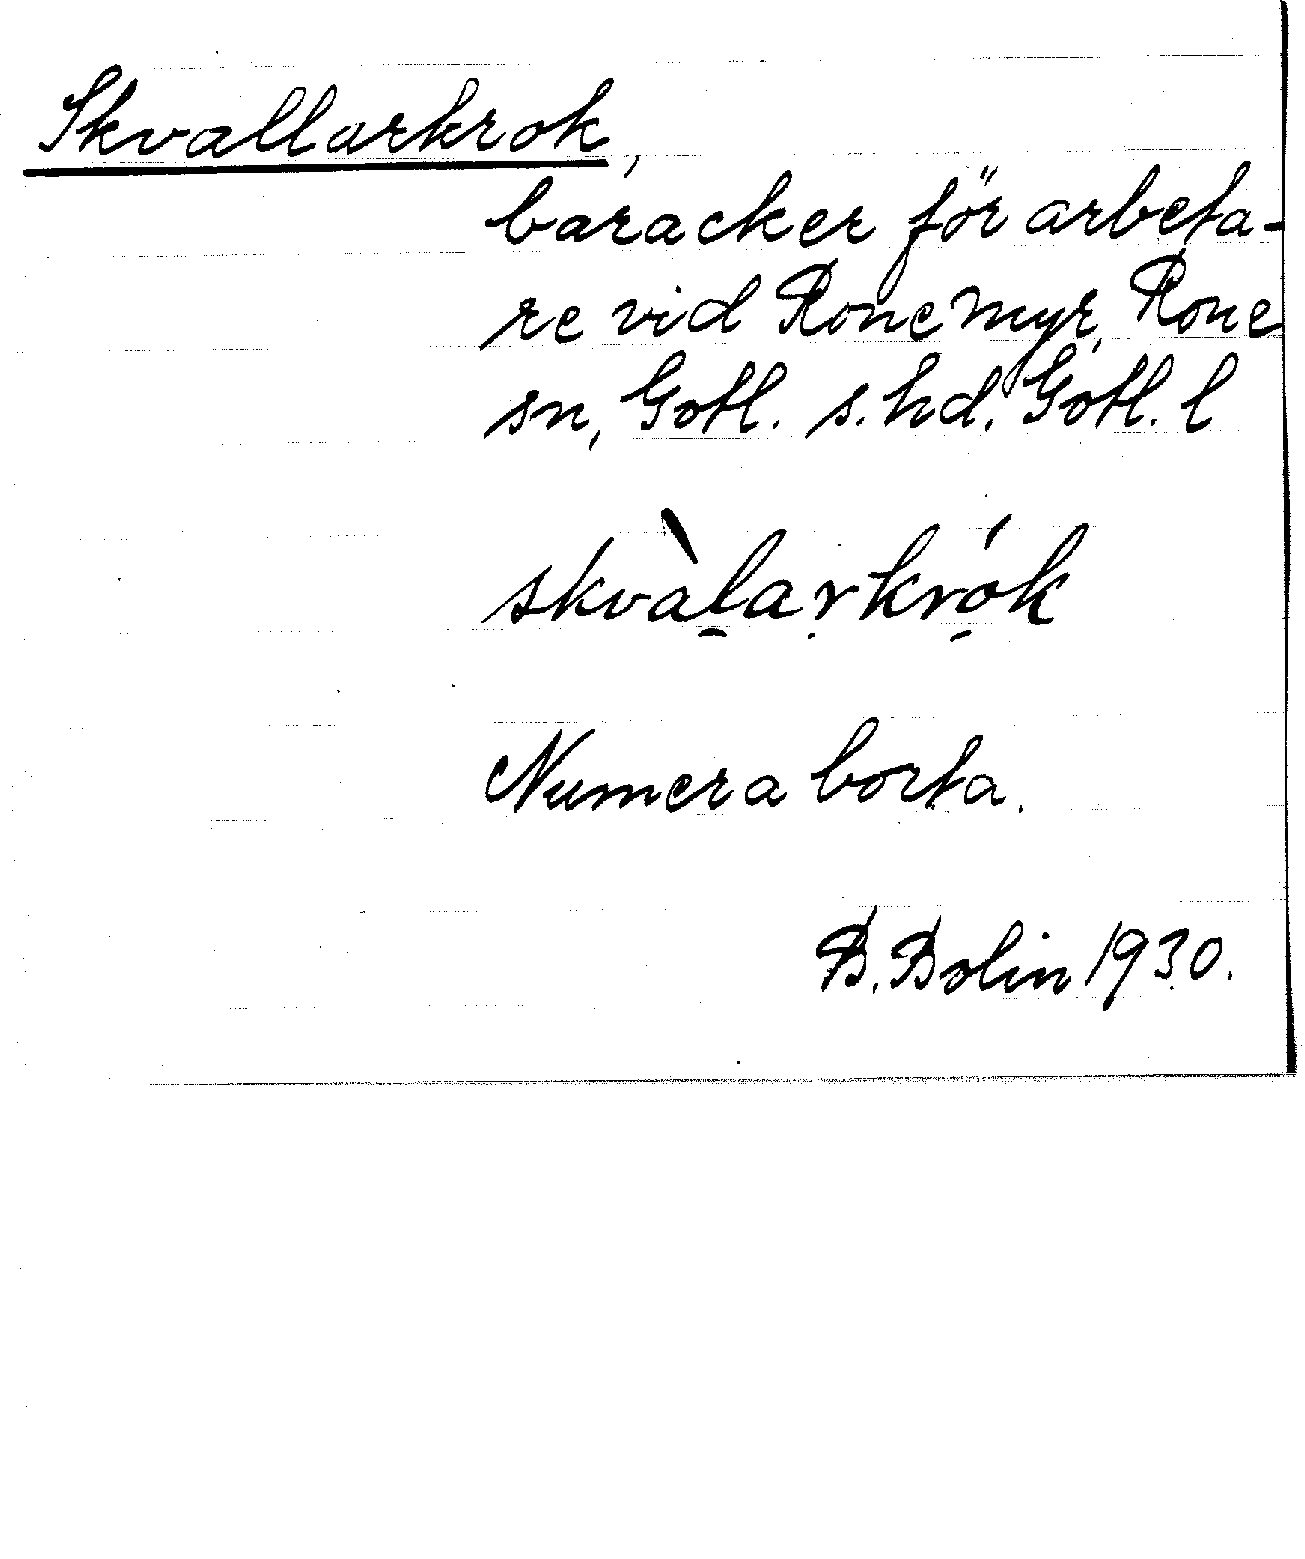 Skvallarkrok,
baracker för arbeta-
re vid Ronemyr, Rone
sn, Gotl. s. hd. Gotl. l
skvàlarkrók
Numera borta.
B. Bolin 1930.